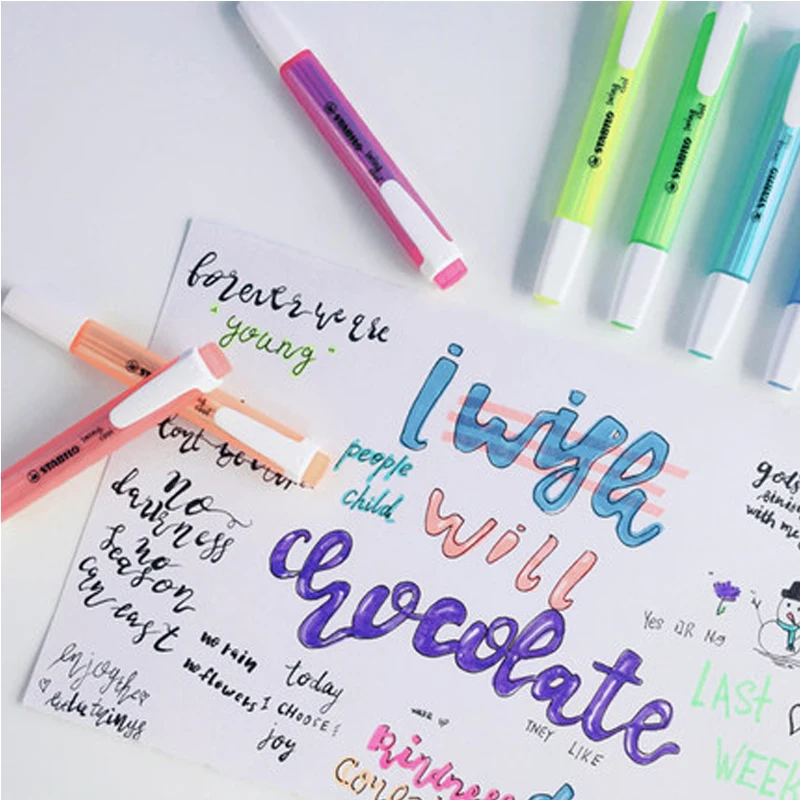 STABILO swing cool
STABILO swing cool
STABILO swing cool
STABILO swing
STABILO swing cool
swing cool
forever we are
young
people
child
I wish
will
chocolate
no
darkness
no
season
can east
no rain
no flowers
enjoy the
today
I CHOOSE
joy
with me
Yes OR No
LAST
WEEK
wake up
THEY LIKE
kindness